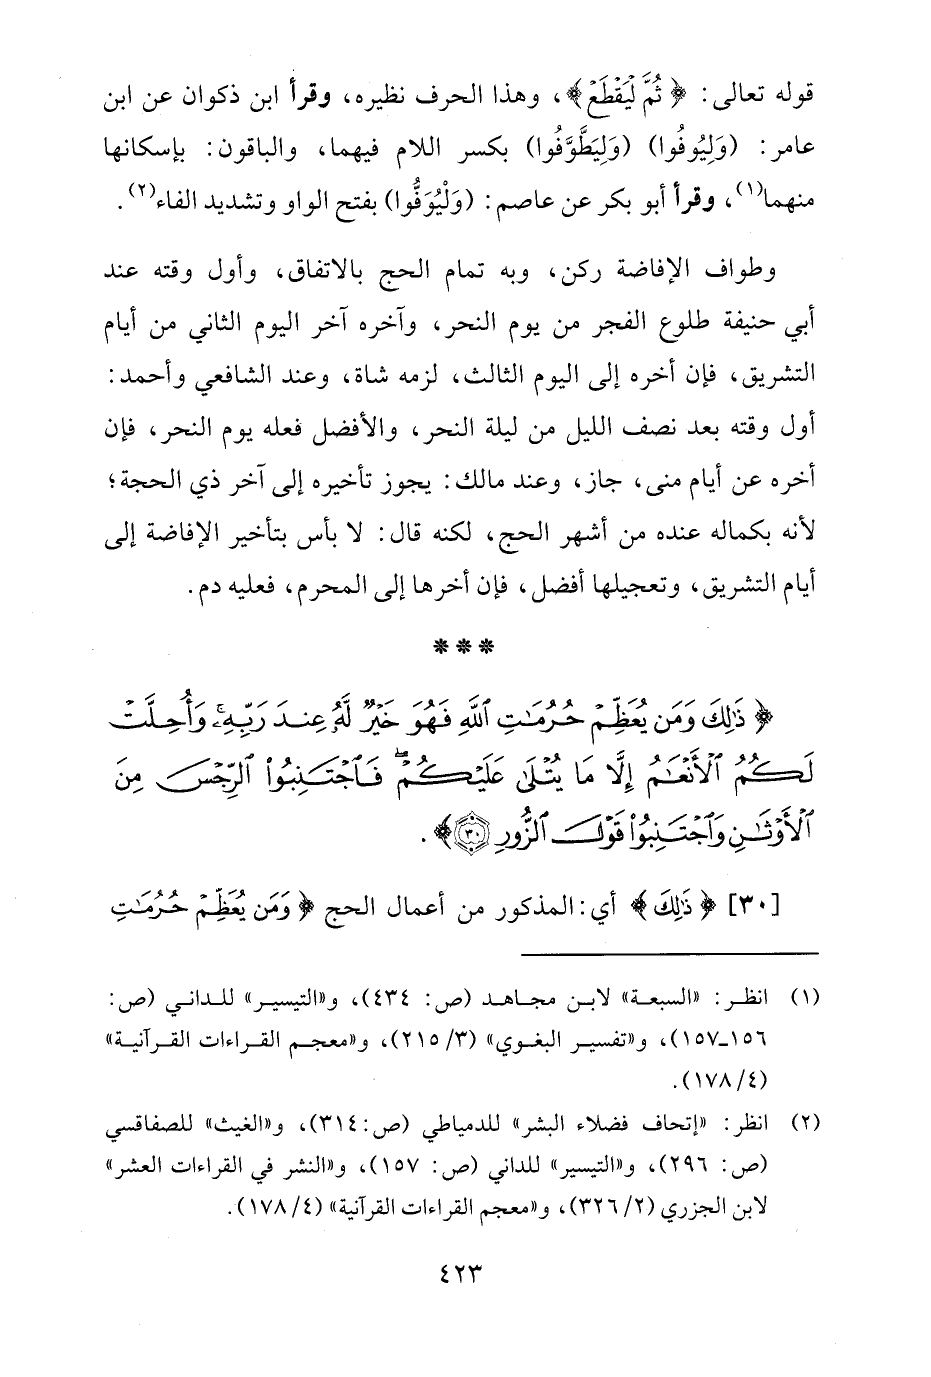 قوله تعالى: ﴿ ثُمَّ لْيَقْطَعْ ﴾، وهذا الحرف نظيره، وقرأ ابن ذكوان عن ابن
عامر: (وَلِيُوفُوا) (وَلِيَطَّوَّفُوا) بكسر اللام فيهما، والباقون: بإسكانها
منهما(١)، وقرأ أبو بكر عن عاصم: (وَلْيُوَفُّوا) بفتح الواو وتشديد الفاء(٢).
وطواف الإفاضة ركن، وبه تمام الحج بالاتفاق، وأول وقته عند
أبي حنيفة طلوع الفجر من يوم النحر، وآخره آخر اليوم الثاني من أيام
التشريق، فإن أخره إلى اليوم الثالث، لزمه شاة، وعند الشافعي وأحمد:
أول وقته بعد نصف الليل من ليلة النحر، والأفضل فعله يوم النحر، فإن
أخره عن أيام منى، جاز، وعند مالك: يجوز تأخيره إلى آخر ذي الحجة؛
لأنه بكماله عنده من أشهر الحج، لكنه قال: لا بأس بتأخير الإفاضة إلى
أيام التشريق، وتعجيلها أفضل، فإن أخرها إلى المحرم، فعليه دم.
***
﴿ ذَٰلِكَ وَمَن يُعَظِّمْ حُرُمَٰتِ ٱللَّهِ فَهُوَ خَيْرٌ لَّهُۥ عِندَ رَبِّهِۦۗ وَأُحِلَّتْ
لَكُمُ ٱلْأَنْعَٰمُ إِلَّا مَا يُتْلَىٰ عَلَيْكُمْۖ فَٱجْتَنِبُوا۟ ٱلرِّجْسَ مِنَ
ٱلْأَوْثَٰنِ وَٱجْتَنِبُوا۟ قَوْلَ ٱلزُّورِ ٣٠ ﴾.
[٣٠] ﴿ ذَٰلِكَ ﴾ أي: المذكور من أعمال الحج ﴿ وَمَن يُعَظِّمْ حُرُمَٰتِ
(١) انظر: «السبعة» لابن مجاهد (ص: ٤٣٤)، و«التيسير» للداني (ص:
١٥٦-١٥٧)، و«تفسير البغوي» (٣/ ٢١٥)، و«معجم القراءات القرآنية»
(٤/ ١٧٨).
(٢) انظر: «إتحاف فضلاء البشر» للدمياطي (ص: ٣١٤)، و«الغيث» للصفاقسي
(ص: ٢٩٦)، و«التيسير» للداني (ص: ١٥٧)، و«النشر في القراءات العشر»
لابن الجزري (٢/ ٣٢٦)، و«معجم القراءات القرآنية» (٤/ ١٧٨).
٤٢٣